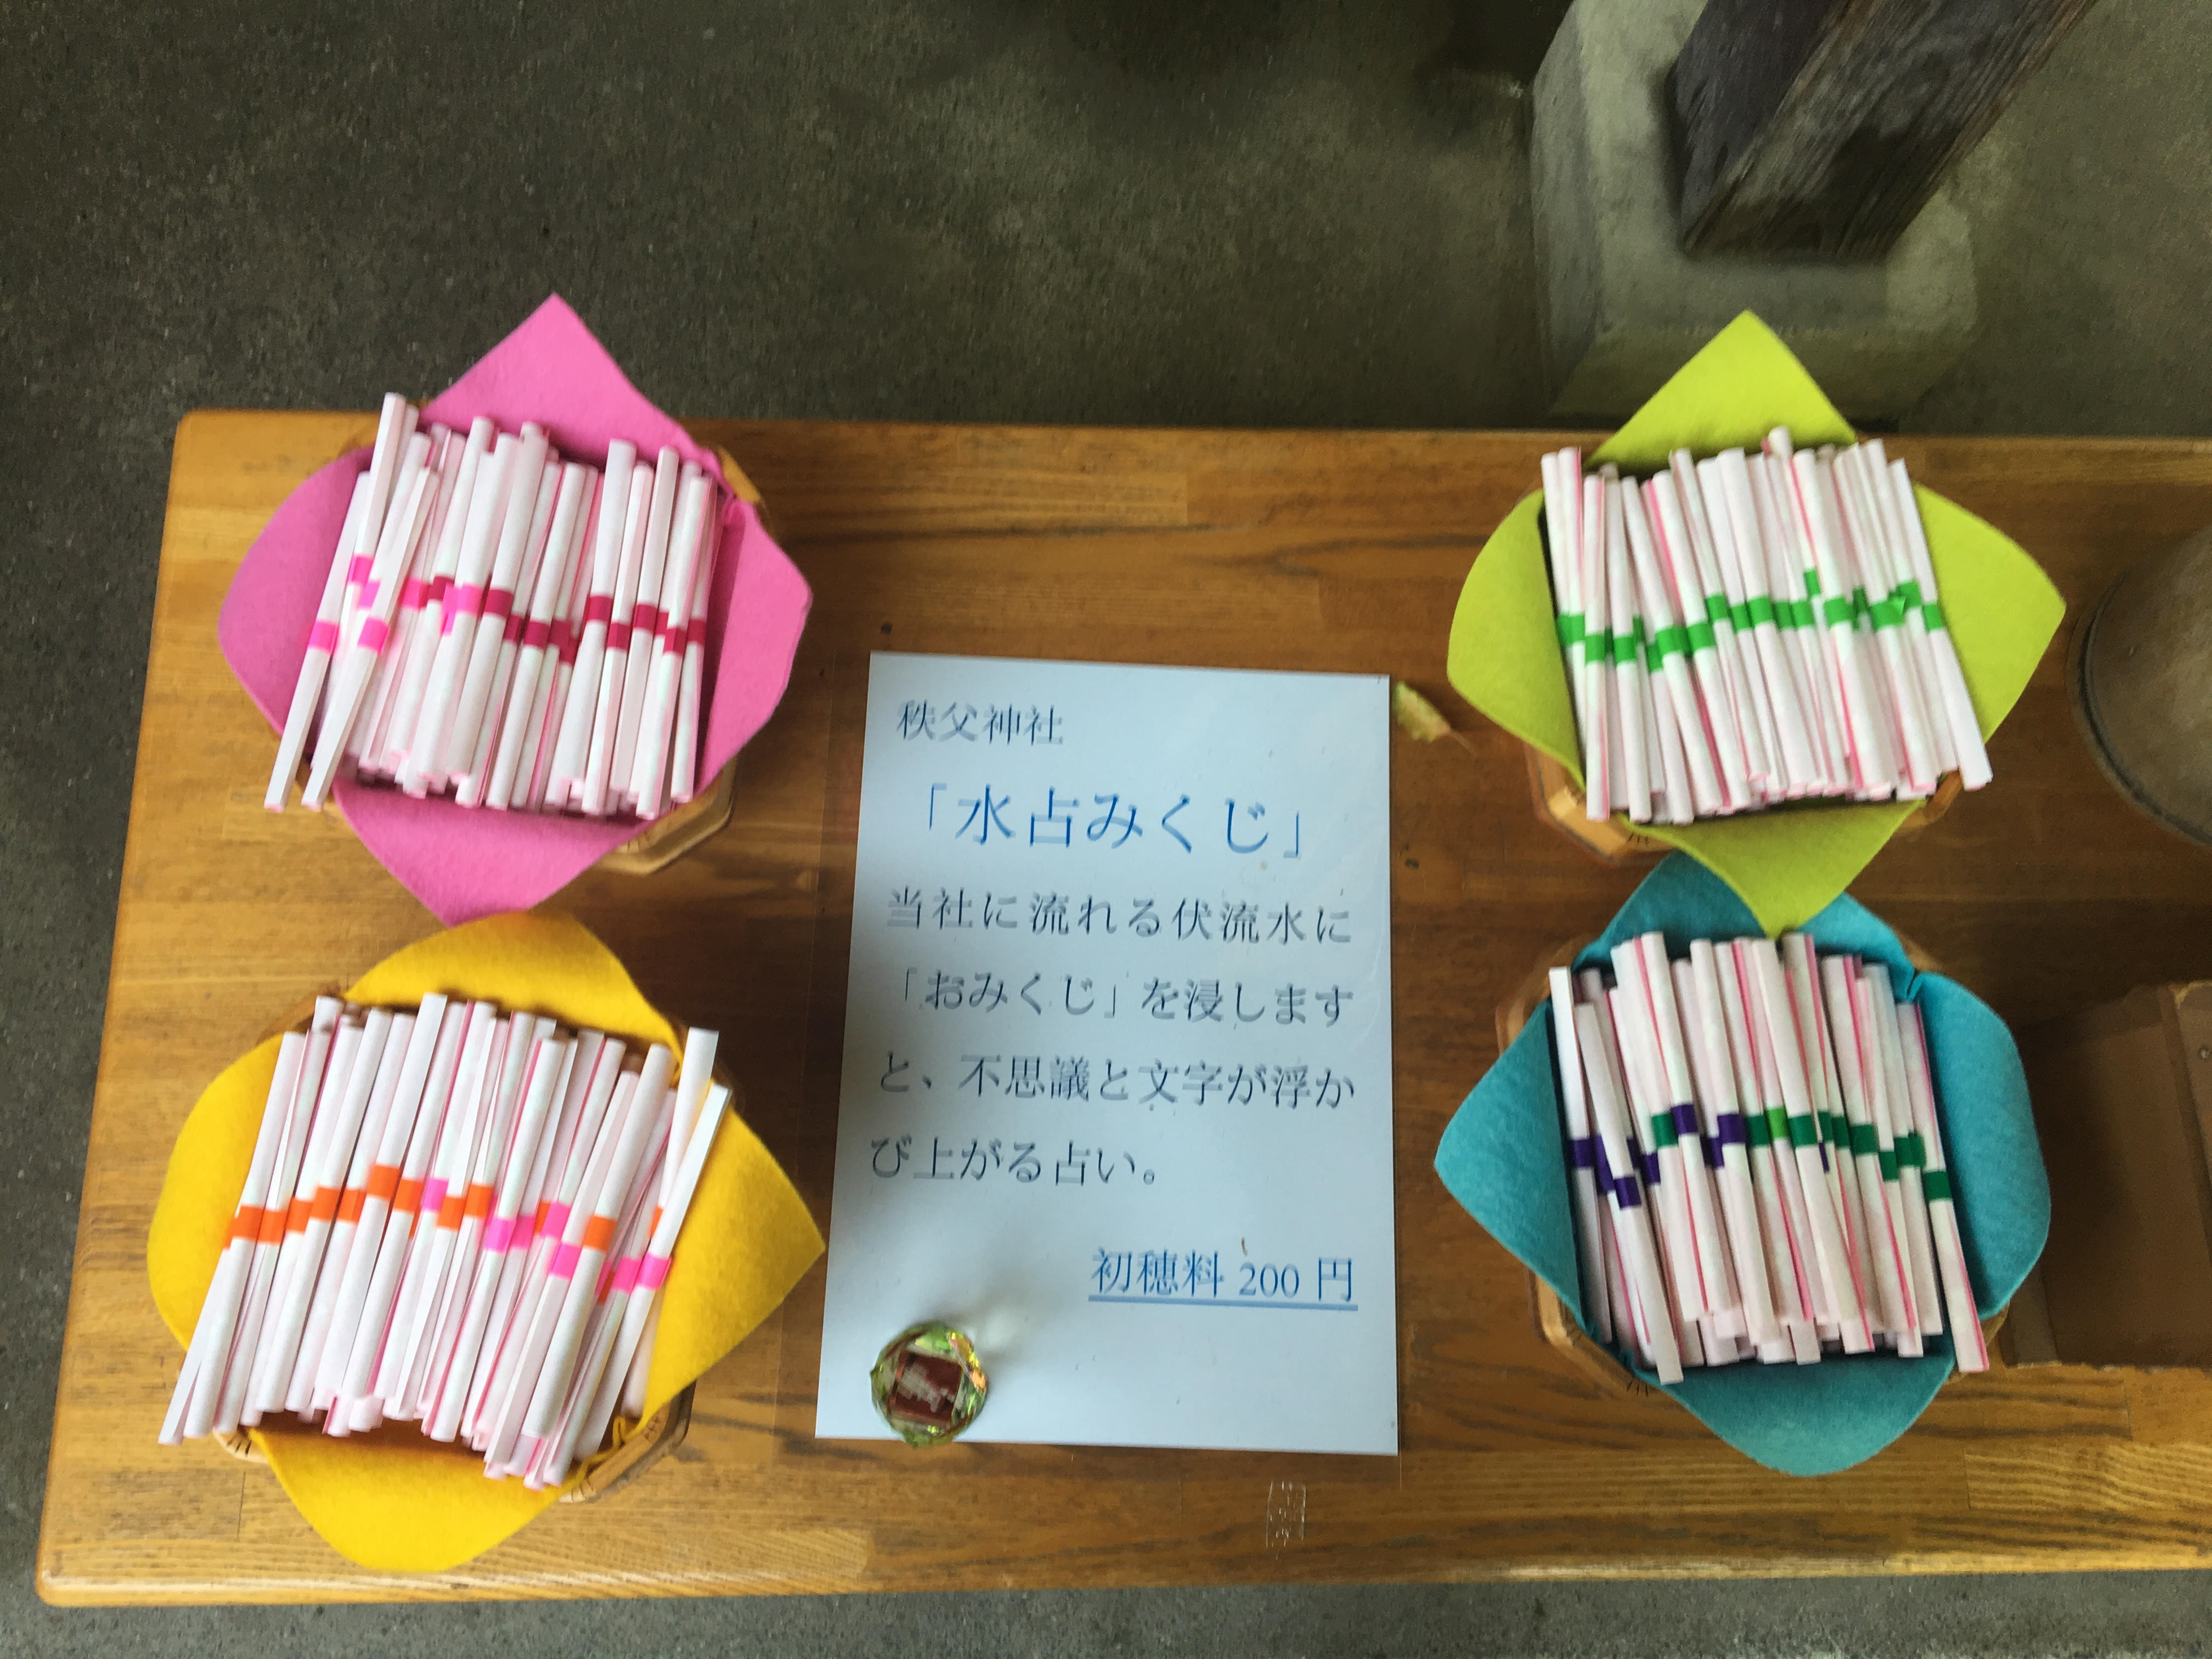 秩父神社
「水占みくじ」
当社に流れる伏流水に
「おみくじ」を浸します
と、不思議と文字が浮か
び上がる占い。
初穂料 200 円